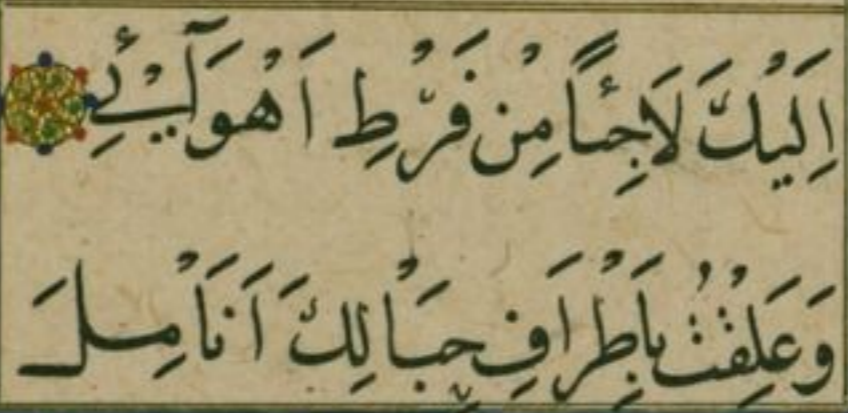 اِلَيْكَ لَاجِئًا مِنْ فَرْطِ اَهْوَآئِيْ
وَعَلِقْتُ بِاَطْرَافِ حِبَالِكَ اَنَامِلَ